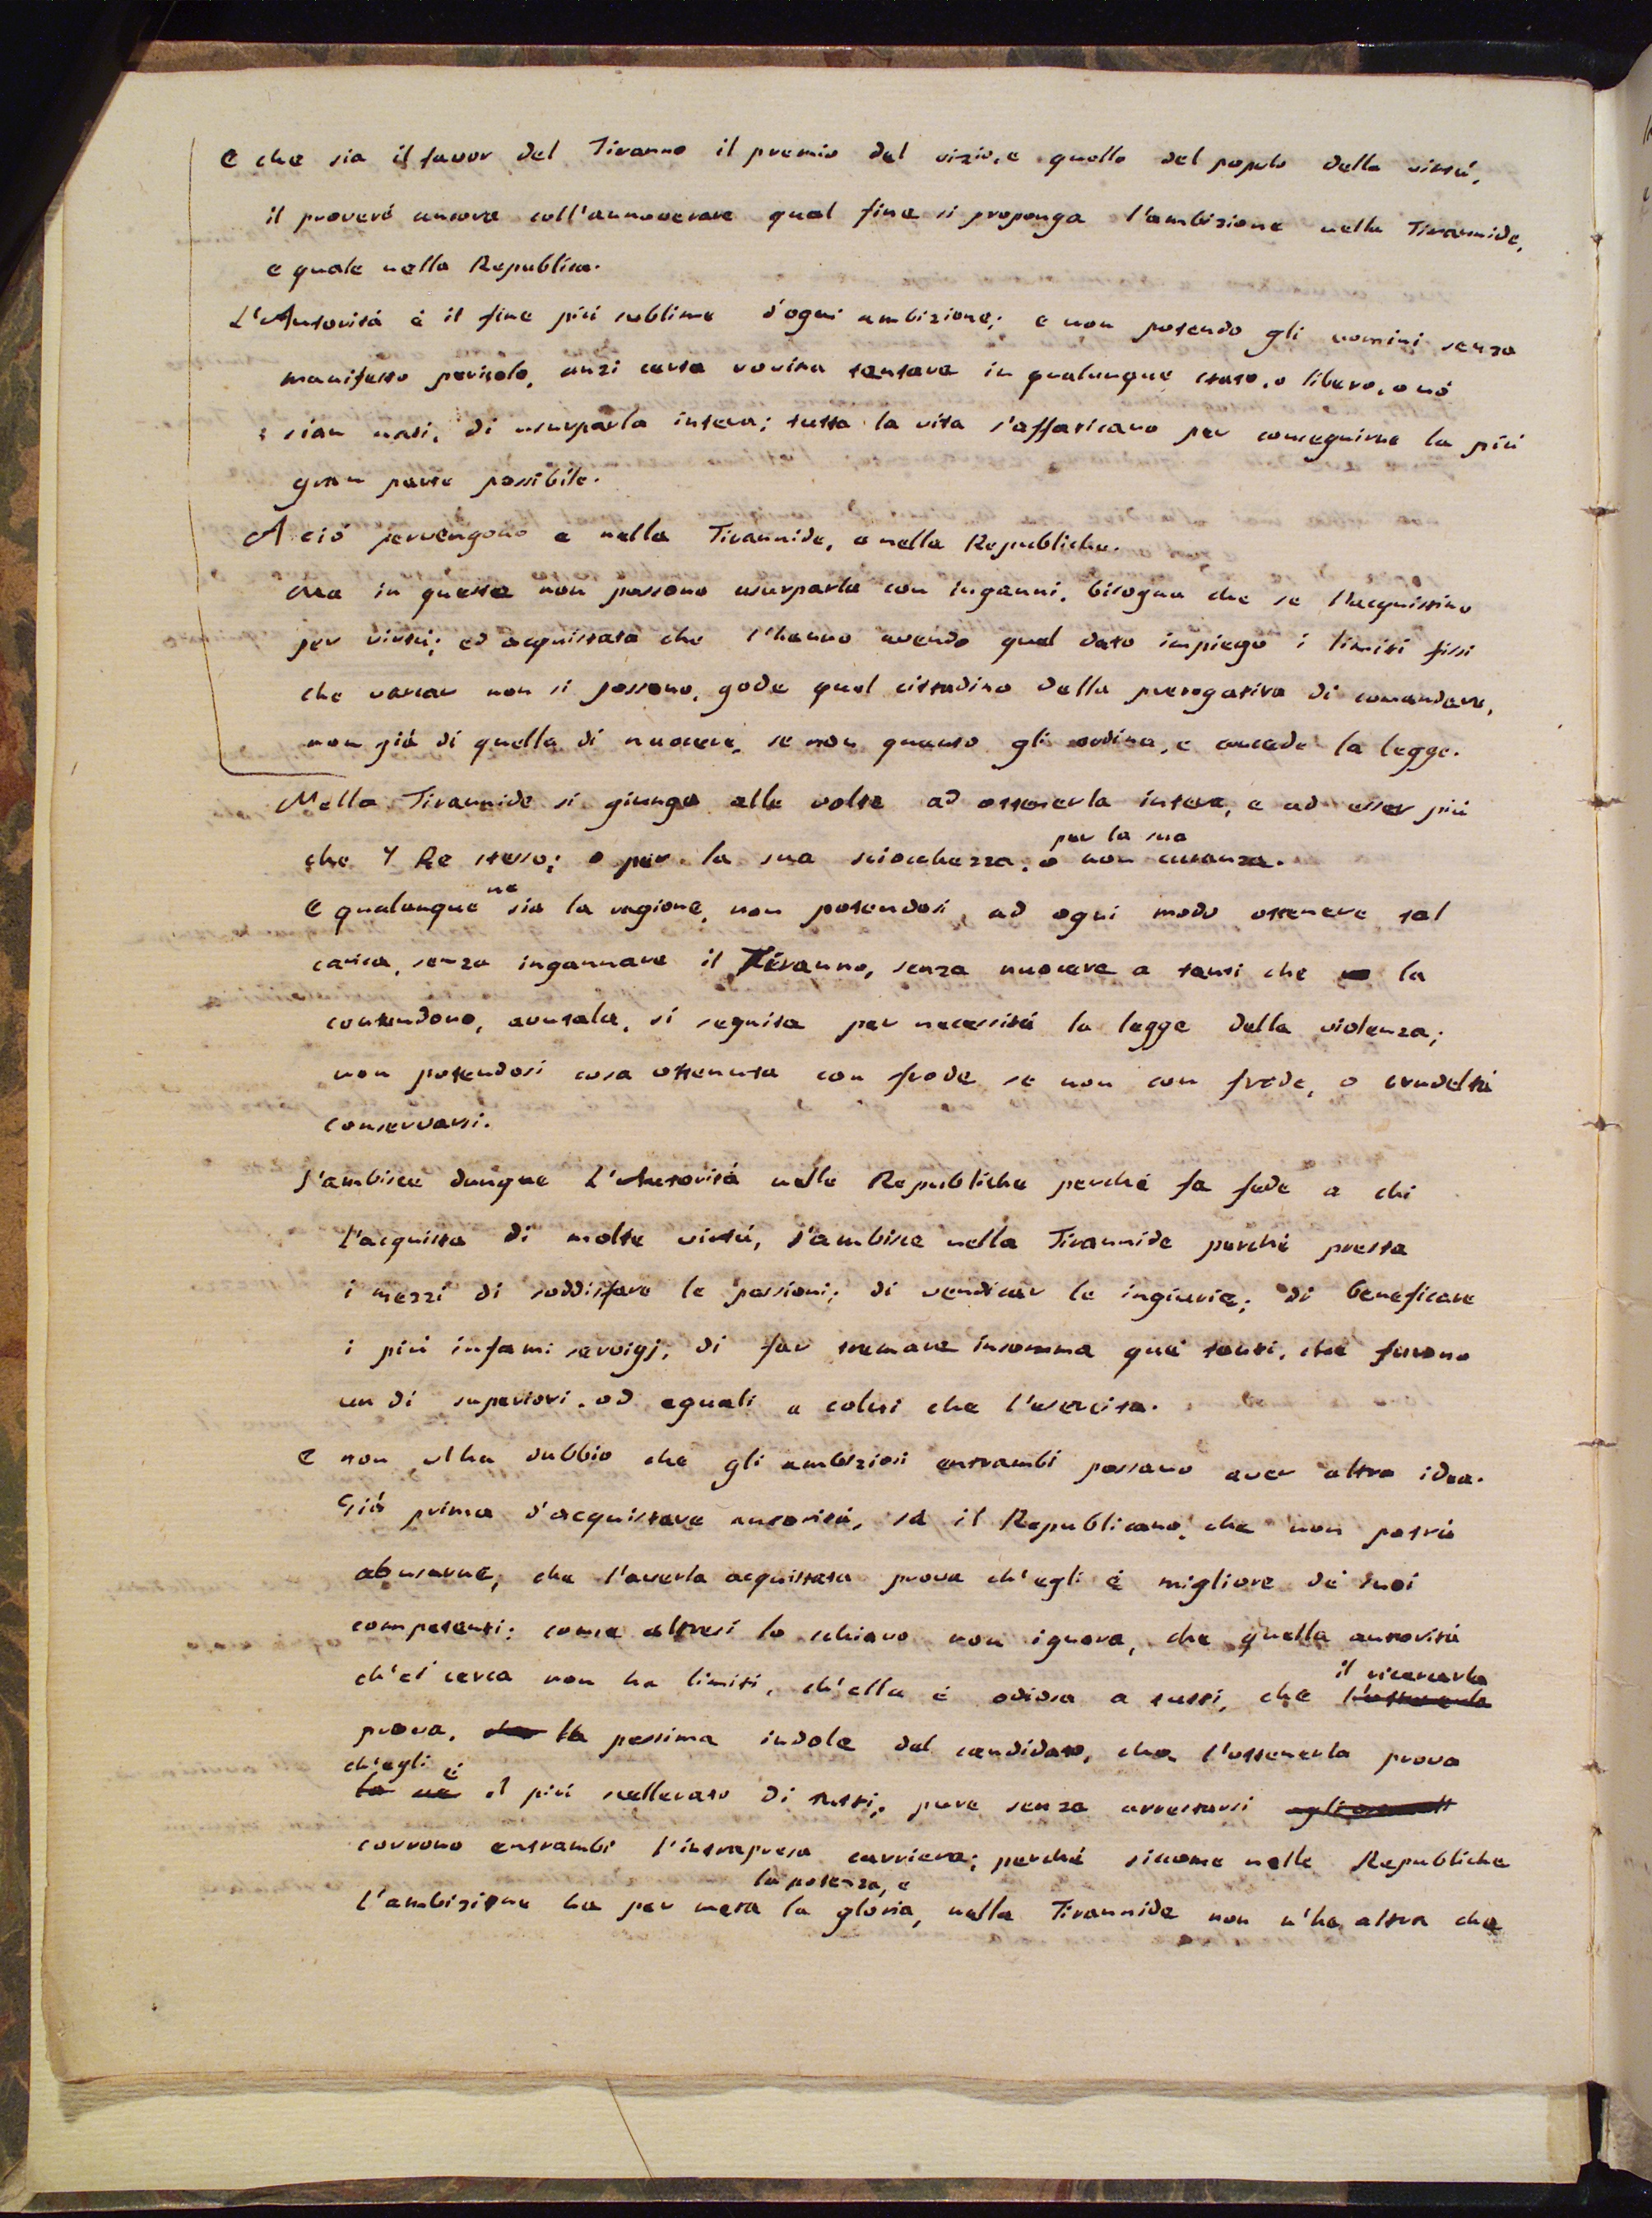 E che sia il favor del Tiranno il premio del vizio, e quello del popolo della virtú,
il proveró ancora coll'annoverare qual fine si proponga l'ambizione nella Tirannide,
e quale nella Republica.
L'Autoritá é il fine piú sublime d'ogni ambizione; e non potendo gli uomini senza
manifesto pericolo, anzi certa rovina tentare in qualunque stato, o libero, o nó
sian nati, di usurparla intera; tutta la vita s'affaticano per conseguirne la piú
gran parte possibile.
A ció pervengono e nella Tirannide, e nella Republiche.
Ma in queste non possono usurparla con inganni, bisogna che se l'acquistino
per virtú; ed acquistata che l'hanno avendo quel dato impiego i limiti fissi
che variar non si possono, gode quel cittadino della prerogativa di comandare,
non giá di quella di nuocere, se non quanto gli ordina, e concede la legge.
Nella Tirannide si giunge alle volte ad ottenerla intera, e ad esser piú
che 'l Re stesso; o per la sua sciochezza, o non curanza.
per la sua
E qualunque ne sia la ragione, non potendosi, ad ogni modo ottenere tal
carica, senza ingannare il Tiranno, senza nuocere a tanti che la
contendono, avutala, si seguita per necessitá la legge della violenza;
non potendosi cosa ottenuta con frode se non con frode, o crudeltá
conservarsi.
S'ambisce dunque L'Autoritá nelle Republiche perché fa fede a chi
l'acquista di molte virtú, s'ambisce nella Tirannide perché presta
i mezzi di soddisfare le passioni; di vendicar le ingiurie; di beneficare
i piú infami servigj; di far tremare insomma qué tanti, che furono
un dí superiori, od eguali a colui che l'esercita.
E non v'ha dubbio che gli ambiziosi entrambi possano aver altra idea.
Giá prima d'acquistare autoritá, sá il Republicano, che non potrá
abusarne, che l'averla acquistata prova ch'egli é migliore dé suoi
competenti; come altresí lo schiavo non ignora, che quella autoritá
ch'ei cerca non ha limiti, ch'ella é odiosa a tutti, che l'ottenerla
il ricercarla
prova, la pessima indole del candidato, che l'ottenerla prova
ch'egli é
la ne il piú scellerato di tutti; pure senza arrestarsi
corrono entrambi l'intrapresa carriera; perché siccome nelle Republiche
la potenza, e
l'ambizione ha per meta la gloria, nella Tirannide non n'ha altra che